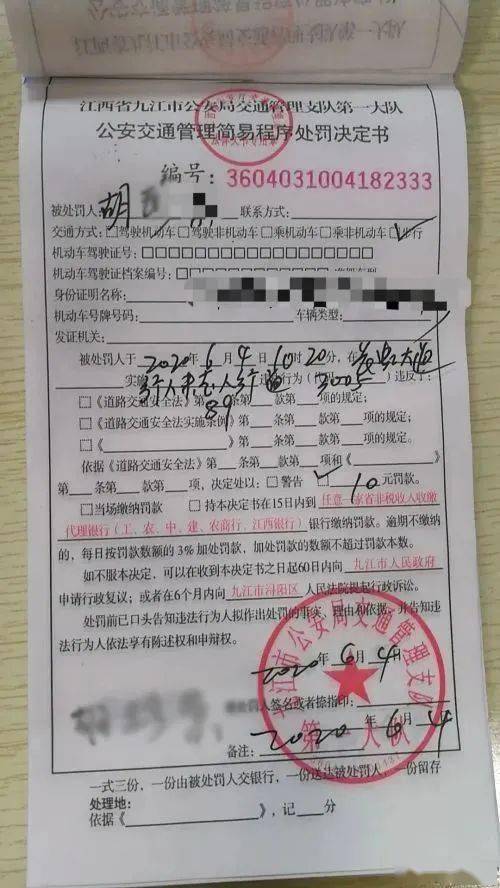 江西省九江市公安局交通管理支队第一大队
公安交通管理简易程序处罚决定书
编号：3604031004182333
被处罚人：胡 联系方式：
交通方式：□驾驶机动车□驾驶非机动车□乘机动车□乘非机动车□步行
机动车驾驶证号：□□□□□□□□□□□□□□□□□□
机动车驾驶证档案编号：□□□□□□□□□□□□
身份证明名称：
机动车号牌号码： 车辆类型：
发证机关：
被处罚人于2020年6月4日10时20分，在 大道
实施行人未走人行道违法行为（代码3005）违反了：
□《道路交通安全法》第 条第 款第 项的规定；
□《道路交通安全法实施条例》第89条第 款第 项的规定；
□《 》第 条第 款第 项的规定。
依据《道路交通安全法》第 条第 款第 项和《 》
第 条第 款第 项，决定处以：□警告 ✓10元罚款。
□当场缴纳罚款 □持本决定书在15日内到任意一家省非税收入收缴
代理银行（工、农、中、建、农商行、江西银行）银行缴纳罚款。逾期不缴纳
的，每日按罚款数额的3%加处罚款，加处罚款的数额不超过罚款本数。
如不服本决定，可以在收到本决定书之日起60日内向九江市人民政府
申请行政复议；或者在6个月内向九江市浔阳区人民法院提起行政诉讼。
处罚前已口头告知违法行为人拟作出处罚的事实、理由和依据，并告知违
法行为人依法享有陈述权和申辩权。
2020年6月4日
被处罚人签名或者捺指印：
2020年6月4
备注：
九江市公安局交通管理支队
第一大队
一式三份，一份由被处罚人交银行，一份送达被处罚人，一份留存
处理地：
依据《 》，记 分